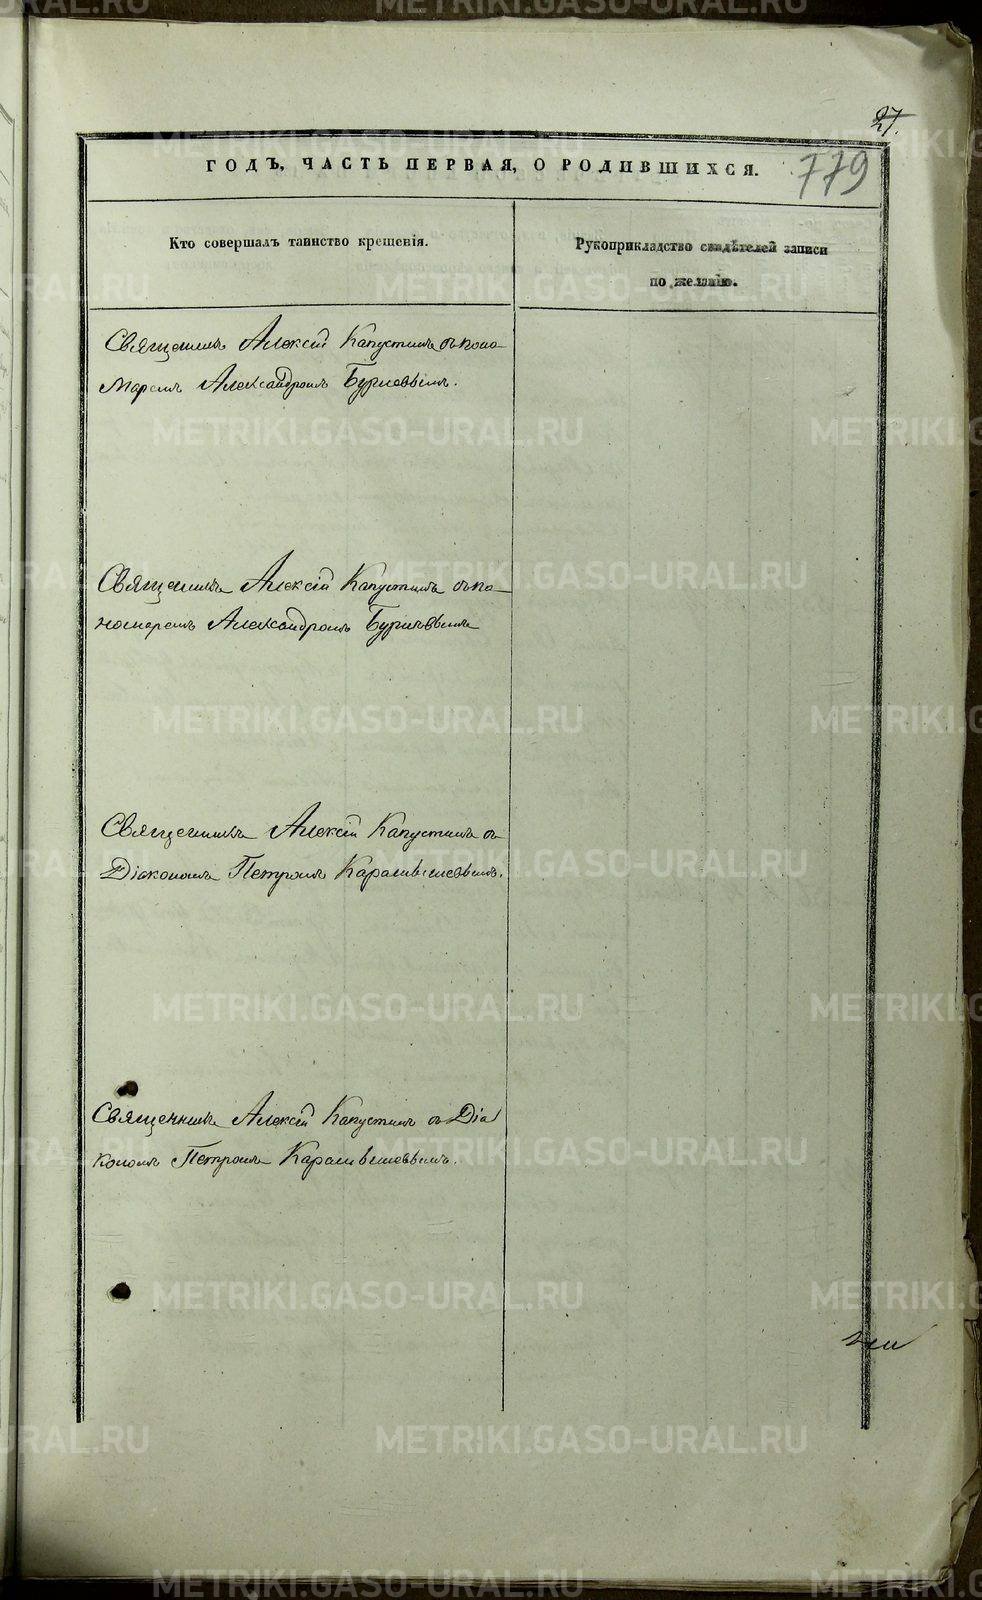 27.
779
ГОДЪ, ЧАСТЬ ПЕРВАЯ, О РОДИВШИХСЯ.
Кто совершалъ таинство крещенія.
Рукоприкладство свидѣтелей записи
по желанію.
Священникъ Алексій Капустинъ съ поно-
маремъ Александромъ
Священникъ Алексій Капустинъ съ по-
номаремъ Александромъ
Священникъ Алексій Капустинъ съ
Діакономъ Петромъ
Священникъ Алексій Капустинъ съ Діа
кономъ Петромъ
METRIKI.GASO-URAL.RU